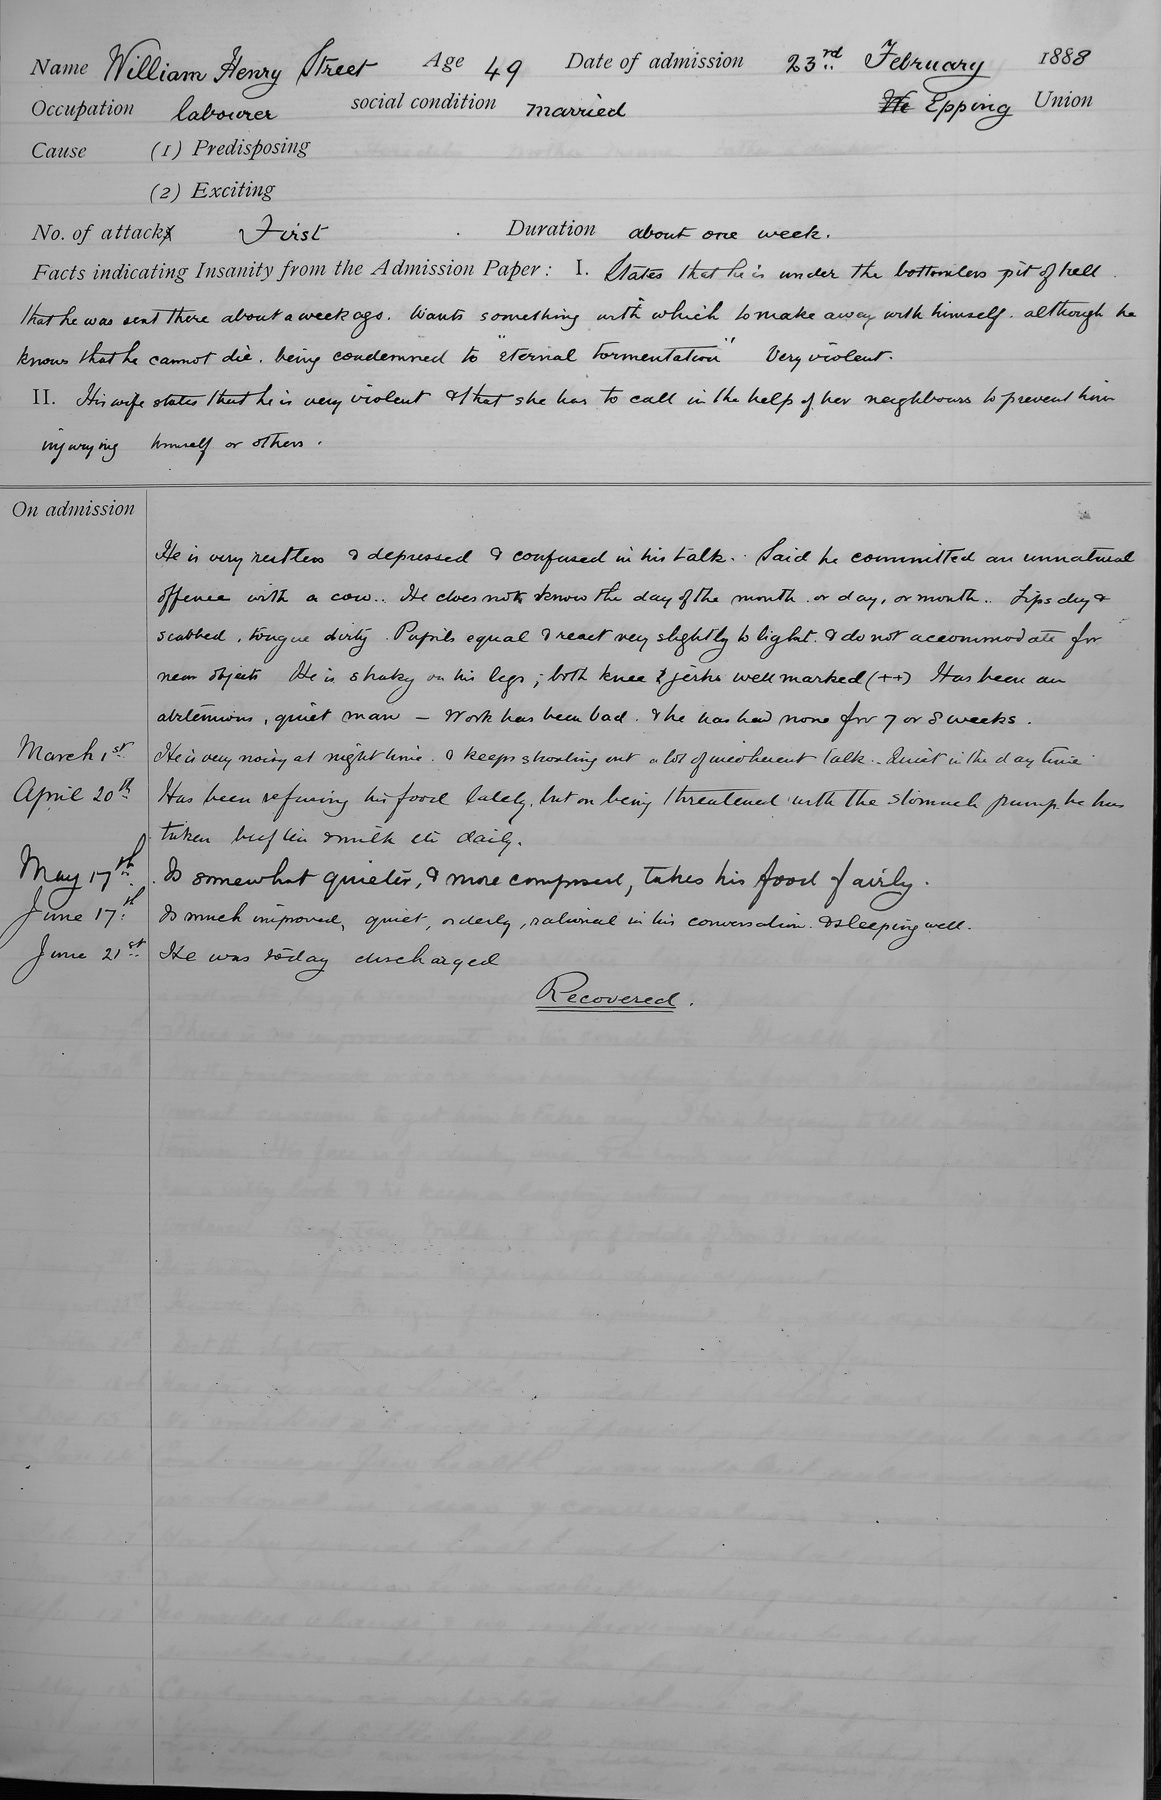 Name William Henry Street Age 49 Date of admission 23rd February 1888
Occupation labourer social condition married Epping Union
Cause (1) Predisposing
(2) Exciting
No. of attacks First . Duration about one week.
Facts indicating Insanity from the Admission Paper: I. States that he is under the bottomless pit of hell.
that he was sent there about a week ago. Wants something with which to make away with himself. although he
knows that he cannot die. being condemned to "eternal tormentation" Very violent.
II. His wife states that he is very violent & that she has to call in the help of her neighbours to prevent him
injurying himself or others.
On admission
He is very restless & depressed & confused in his talk. Said he committed an unnatural
offence with a cow.. He does not know the day of the month or day, or month.. Lips dry &
scabbed, tongue dirty. Pupils equal & react very slightly to light. & do not accommodate for
near objects He is shaky on his legs; both knee jerks well marked (++) Has been an
abstemious, quiet man – Work has been bad. & he has had none for 7 or 8 weeks.
March 1st He is very noisy at night time. & keeps shouting out a lot of incoherent talk.. Quiet in the day time
April 20th Has been refusing his food lately, but on being threatened with the stomach pump he has
taken beef tea & milk etc daily.
May 17th. Is somewhat quieter, & more composed, takes his food fairly.
June 17th Is much improved, quiet, orderly, rational in his conversation. & sleeping well.
June 21st He was today discharged
Recovered.